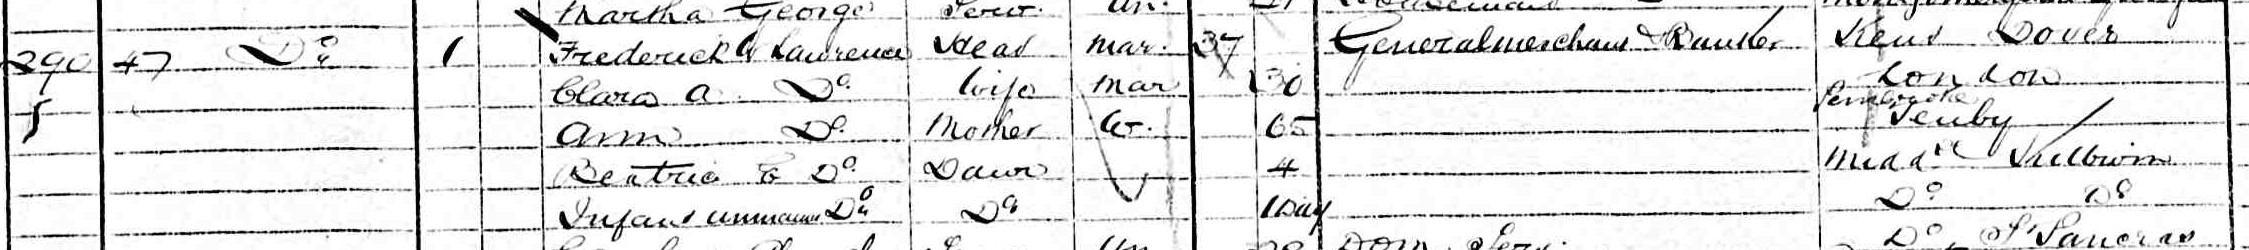 Martha George Serv. Un.
290 47 Do 1 Frederick W Lawrence Head Mar. 37 General merchant & Banker Kent Dover
Clara A. Do Wife Mar 30 London
5 Ann Do Mother W. 65 Pembroke Tenby
Beatrice E Do Daur 4 Middx
Infant unnamed Do Do 1 Day Do Do
Un. Dom. Serv. Do St Pancras